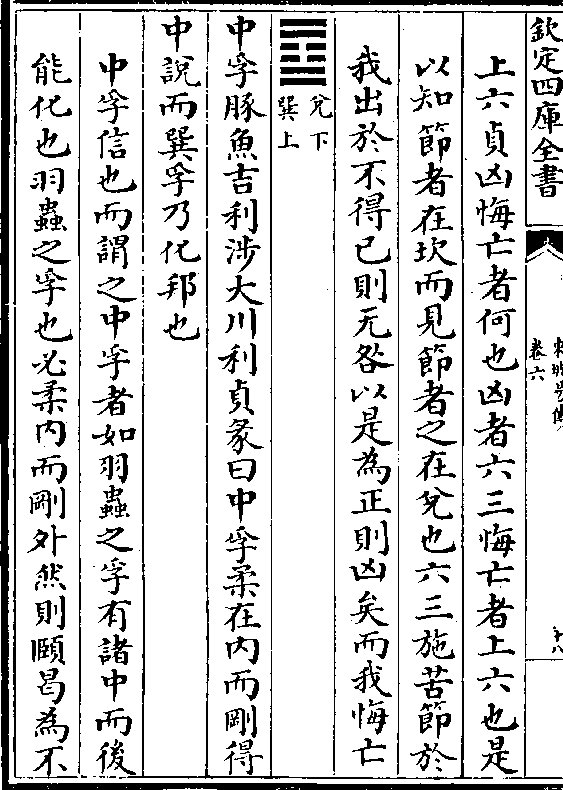 欽定四庫全書
卷六
十八
上六貞凶悔亡者何也凶者六三悔亡者上六也是
以知節者在坎而見節者之在兌也六三施苦節於
我出於不得已則无咎以是為正則凶矣而我悔亡
兌下
巽上
中孚豚魚吉利涉大川利貞彖曰中孚柔在内而剛得
中說而巽孚乃化邦也
中孚信也而謂之中孚者如羽蟲之孚有諸中而後
能化也羽蟲之孚也必柔内而剛外然則頤曷為不